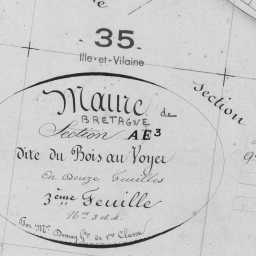 35
Ille-et-Vilaine
Section
Maure de
BRETAGNE
Section AE3
dite du Bois au Voyer
En douze feuilles
3ème Feuille
Par Mr. de 1re Classe